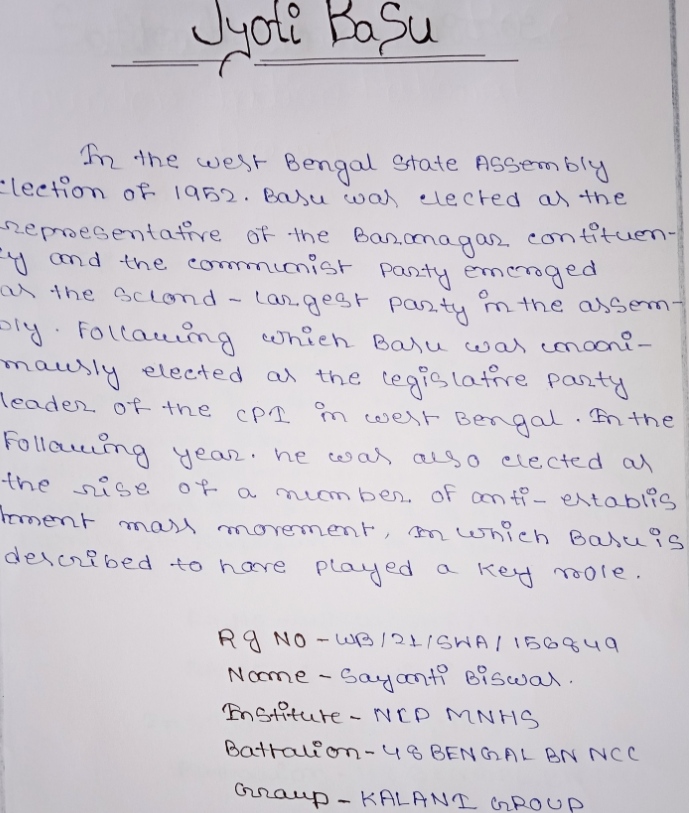 Jyoti Basu
In the west Bengal State Assembly
election of 1952. Basu was elected as the
representative of the Baranagar contituen-
cy and the communist party emerged
as the second-largest party in the assem-
bly. Following which Basu was unani-
mausly elected as the legislative party
leader of the CPI in west Bengal. In the
Following year. he was also elected as
the rise of a number of anti-establis
hment mass movement, in which Basu is
described to have played a key role.
Rg NO - WB/21/SWA/156849
Name - Sayanti Biswas.
Institute - NCP MNHS
Battalion - 48 BENGAL BN NCC
Group - KALANI GROUP